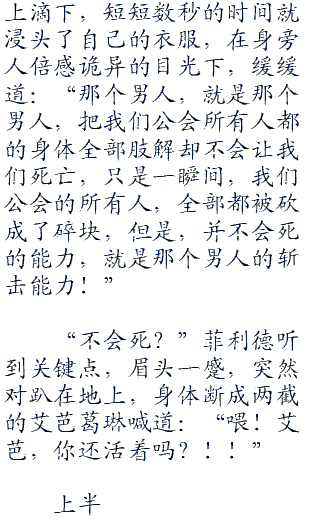 上滴下，短短数秒的时间就
浸头了自己的衣服，在身旁
人倍感诡异的目光下，缓缓
道：“那个男人，就是那个
男人，把我们公会所有人都
的身体全部肢解却不会让我
们死亡，只是一瞬间，我们
公会的所有人，全部都被砍
成了碎块，但是，并不会死
的能力，就是那个男人的斩
击能力！”
“不会死？”菲利德听
到关键点，眉头一蹙，突然
对趴在地上，身体断成两截
的艾芭葛琳喊道：“喂！艾
芭，你还活着吗？！！”
上半